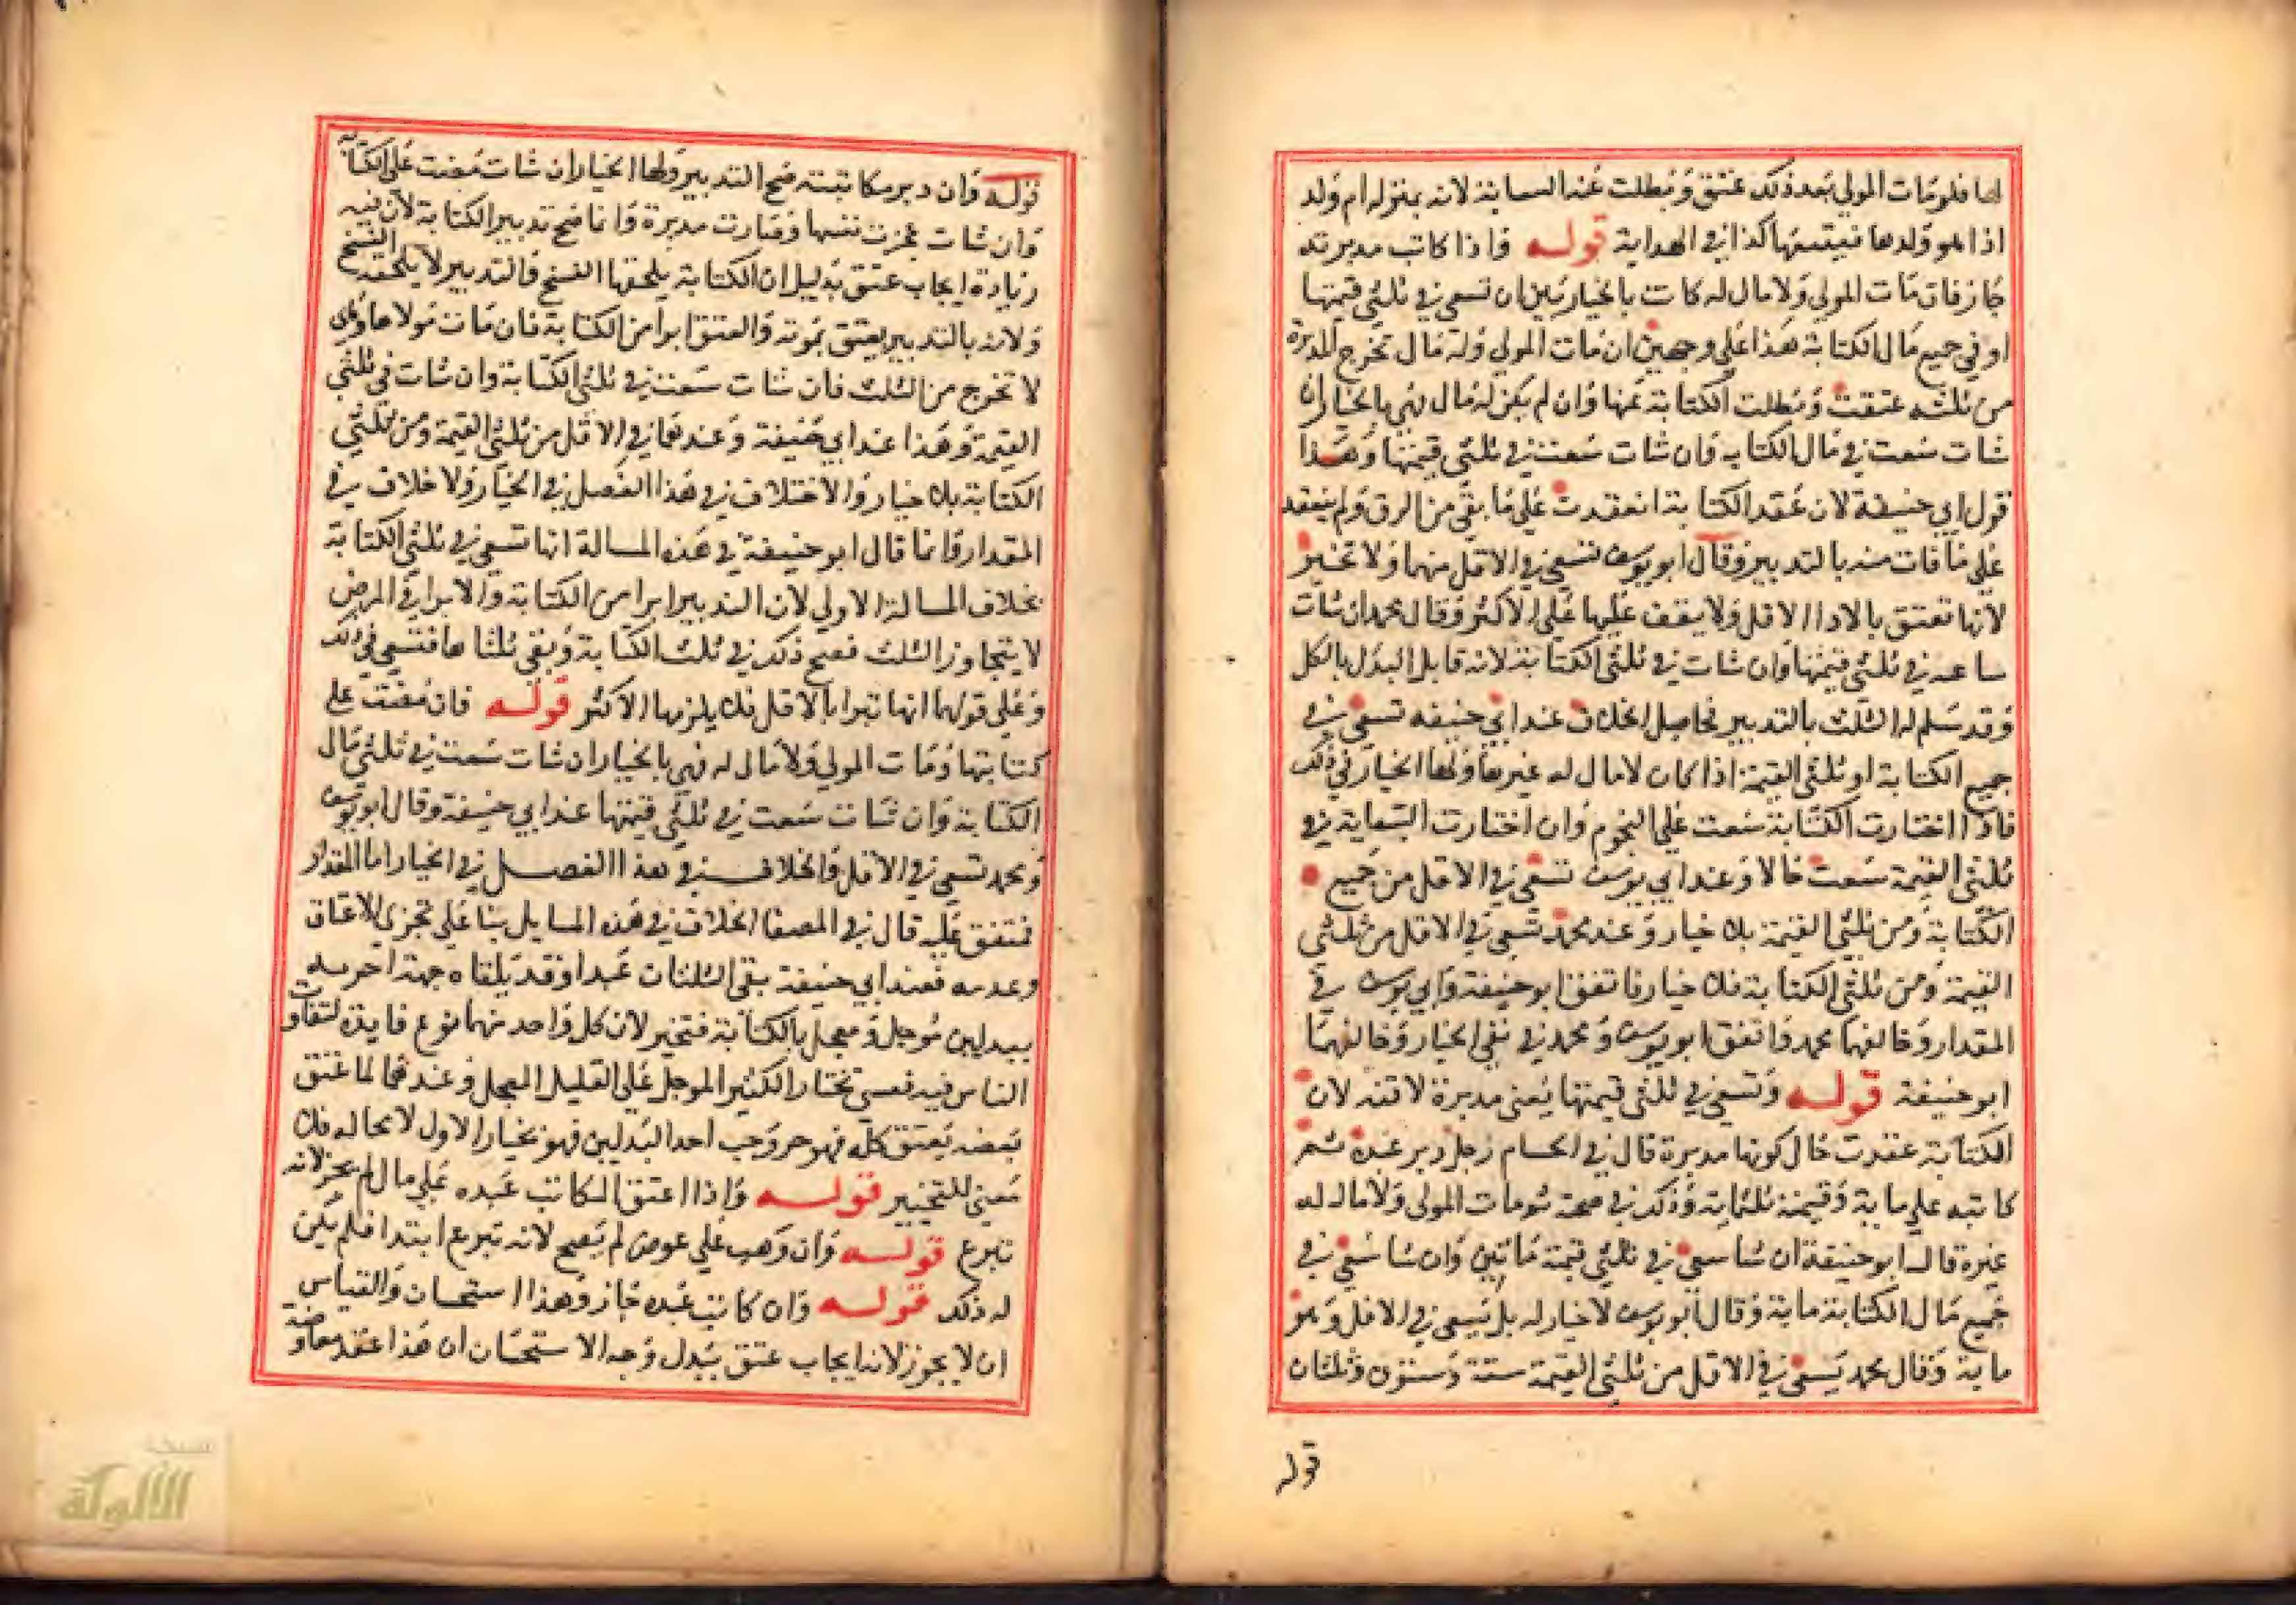 لها فلو مات المولي بعد ذلك عتق وبطلت عنها السعاية لانه بمنزله ام ولد
اذا هو ولدها فيتبعها كذا في الهداية قوله واذا كاتب مدبرته
جاز فان مات المولي ولا مال له كانت بالخيار بين ان تسعي في ثلثي قيمتها
او في جميع مال الكتابة هذا علي وجهين ان مات المولي وله مال تخرج المدبرة
من ثلثه عتقت وبطلت الكتابة عنها وان لم يكن له مال فهي بالخيار ان
شات سعت في مال الكتابه وان شات سعت في ثلثي قيمتها وهذا
قول ابي حنيفة لان عقد الكتابة انعقدت علي ما بقي من الرق ولم ينعقد
علي ما فات منه بالتدبير وقال ابو يوسف تسعي في الاقل منهما ولا تخير
لانها تعتق بالادا الاقل ولا يقف عليها علي الاكثر وقال محمد ان شات
سا عه في ثلثي قيمتها وان شات في ثلثي الكتابة لانه قابل البدل بالكل
وقد سلم له الثلث بالتدبير فحاصل الخلاف عند ابي حنيفه تسعي في
جميع الكتابة او ثلثي القيمة اذا كان لا مال له غيرها ولها الخيار في ذلك
فاذا اختارت الكتابة سعت علي النجوم وان اختارت السعاية في
ثلثي القيمة سعت حالا وعند ابي يوسف تسعي في الاقل من جميع
الكتابة ومن ثلثي القيمة بلا خيار وعند محمد تسعي في الاقل من ثلثي
القيمة ومن ثلثي الكتابة فلا خيار فاتفق ابو حنيفة وابي يوسف في
المقدار وخالفهما محمد واتفق ابو يوسف ومحمد في نفي الخيار وخالفهما
ابو حنيفة قوله وتسعي في ثلثي قيمتها يعني مدبرة لا قنه لان
الكتابة عقدت حال كونها مدبرة قال في الحسام رجل دبر عبده ثم
كاتبه علي ماية وقيمته ثلثماية وذلك في صحة ثم مات المولي ولا مال له
غيره قال ابو حنيفة ان شا سعي في ثلثي قيمة ماتين وان شا سعي في
جميع مال الكتابة ماية وقال ابو يوسف لا خيار له بل يسعي في الاقل وهو
ماية وقال محمد يسعي في الاقل من ثلثي القيمة ستة وستون وثلثان
قوله
قوله وان دبر مكاتبته صح التدبير ولها الخيار ان شات مضت علي الكتابة
وان شات عجزت نفسها وصارت مدبرة وانما صح تدبير الكتابة لان فيه
زيادة ايجاب عتق بدليل ان الكتابة يلحقها الفسخ والتدبير لا يلحقه الفسخ
ولانه بالتدبير يعتق بموته والعتق ابرا من الكتابة فان مات مولاها وهي
لا تخرج من الثلث فان شات سعت في ثلثي الكتابة وان شات في ثلثي
القيمة وهذا عند ابي حنيفة وعندهما في الاقل من ثلثي القيمة ومن ثلثي
الكتابة بلا خيار والاختلاف في هذا الفصل في الخيار ولا خلاف في
المقدار وانما قال ابو حنيفة في هذه المسالة انها تسعي في ثلثي الكتابة
بخلاف المسالة الاولي لان التدبير ابرا من الكتابة والابرا في المرض
لا يتجاوز الثلث فصح ذلك في ثلث الكتابة وبقي ثلثاها فتسعي في ذلك
وعلي قولهما انها تبرا بالاقل فلا يلزمها الاكثر قوله فان مضت علي
كتابتها ومات المولي ولا مال له فهي بالخيار ان شات سعت في ثلثي مال
الكتابة وان شات سعت في ثلثي قيمتها عند ابي حنيفة وقال ابو يوسف
ومحمد تسعي في الاقل والخلاف في هذا الفصل في الخيار اما المقدار
فمتفق عليه قال في المصفا الخلاف في هذه المسايل بنا علي تجزي الاعتاق
وعدمه فعند ابي حنيفة بقي الثلثان عبدا وقد تلقاه جهتا حريه
ببدلين موجل ومعجل بالكتابة فتخير لان كل واحد منهما نوع فايدة لتفاوت
الناس فيه فعسي تختار الكثير الموجل علي القليل المعجل وعندهما لما عتق
بعضه يعتق كله فهو حر وجب احد البدلين فهو نختار الاول لا محاله فلا
معني للتخيير قوله واذا اعتق المكاتب عبده علي مال لم يجز لانه
تبرع قوله وان وهب علي عوض لم يصح لانه تبرع ابتدا فلم يكن
له ذلك قوله وان كاتب عبده جاز وهذا استحسان والقياس
ان لا يجوز لانه ايجاب عتق ببدل وجه الاستحسان ان هذا عقد معاوضة
شبكة
الألوكة